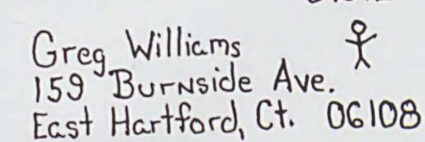 Greg Williams
159 Burnside Ave.
East Hartford, Ct. 06108